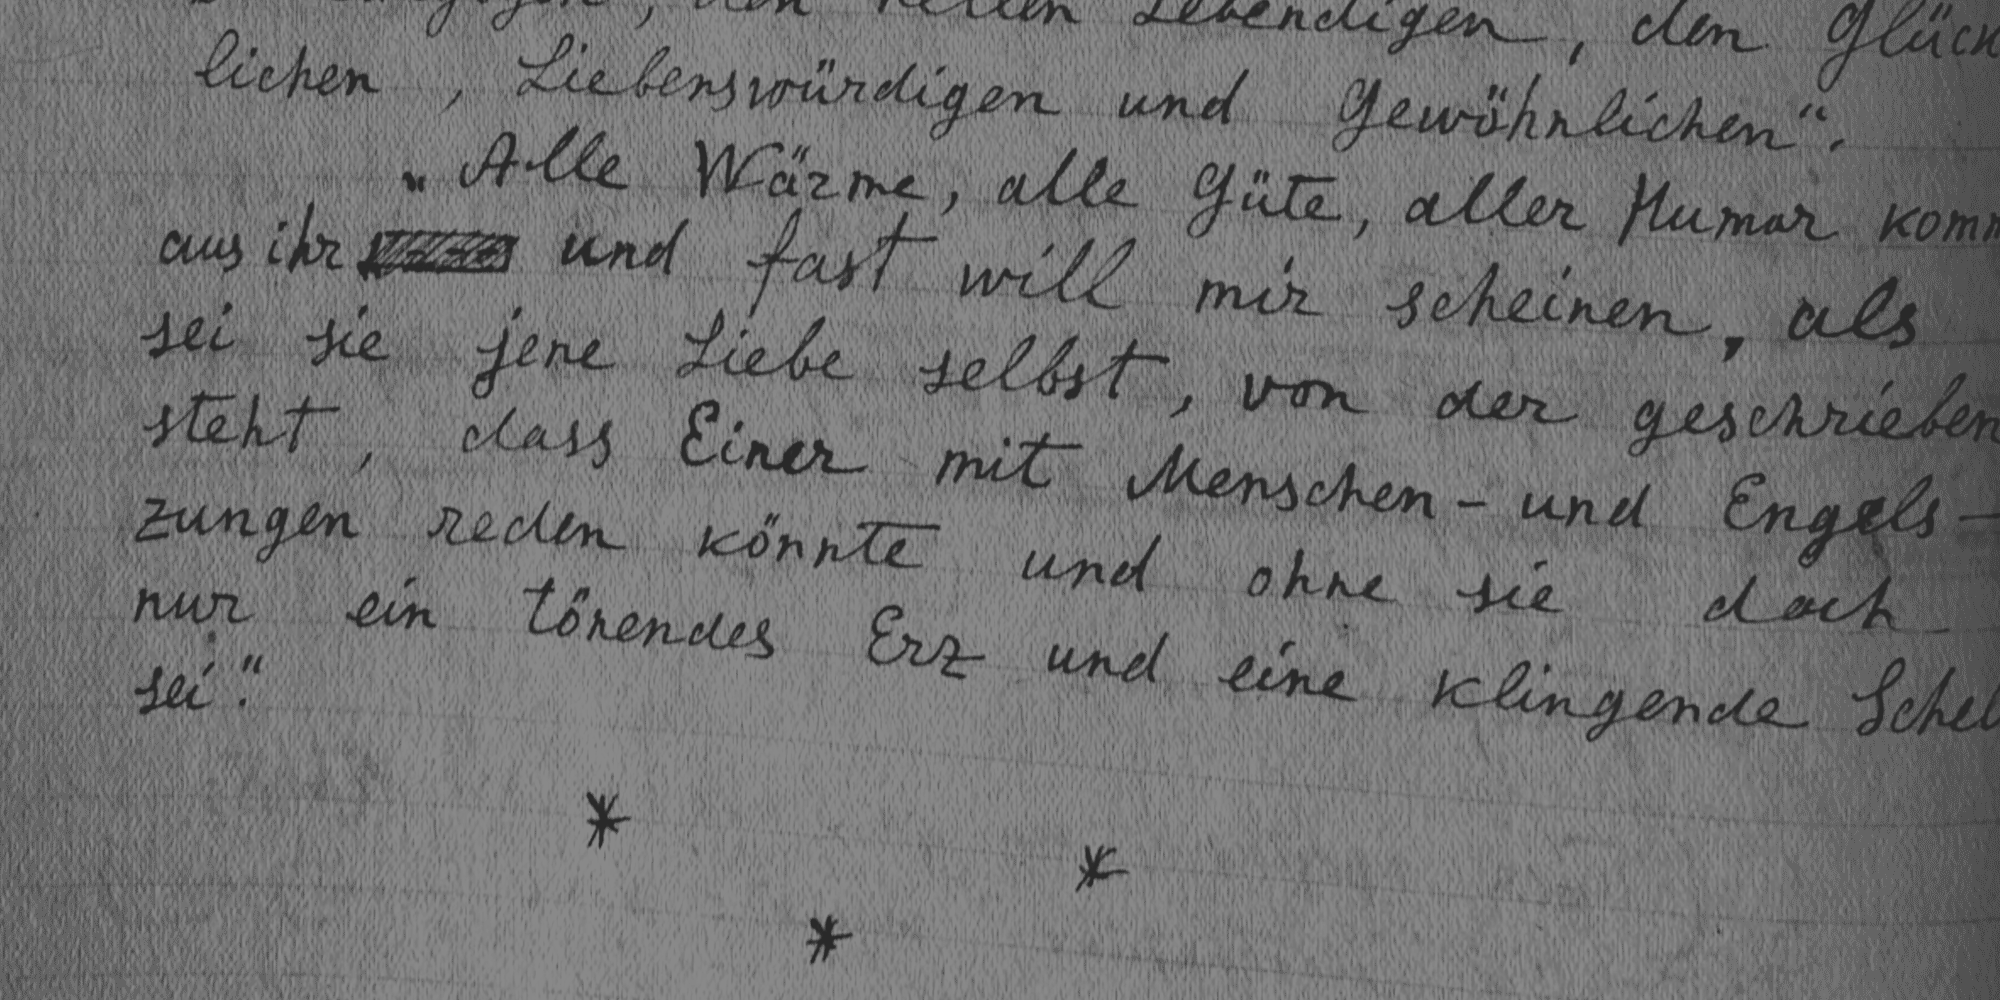 den hellen Lebendigen, den Glück
lichen, Liebenswürdigen und Gewöhnlichen".
„Alle Wärme, alle Güte, aller Humor komm
aus ihr und fast will mir scheinen, als
sei sie jene Liebe selbst, von der geschrieben
steht, dass Einer mit Menschen- und Engels-
zungen reden könnte und ohne sie doch
nur ein tönendes Erz und eine klingende Schel
sei."